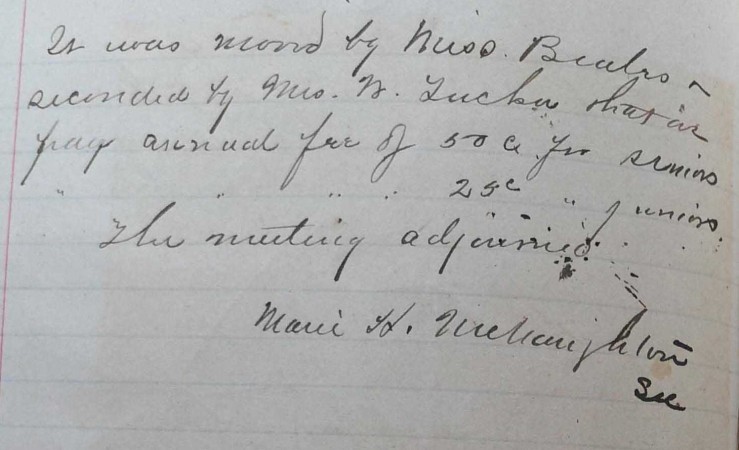 It was moved by Miss. Beales &
seconded by Mrs. W. Tucker that we
pay annual fee of 50 c for seniors
" " " " 25c " juniors.
The meeting adjourned.
Marie H. McNaughton
Sec